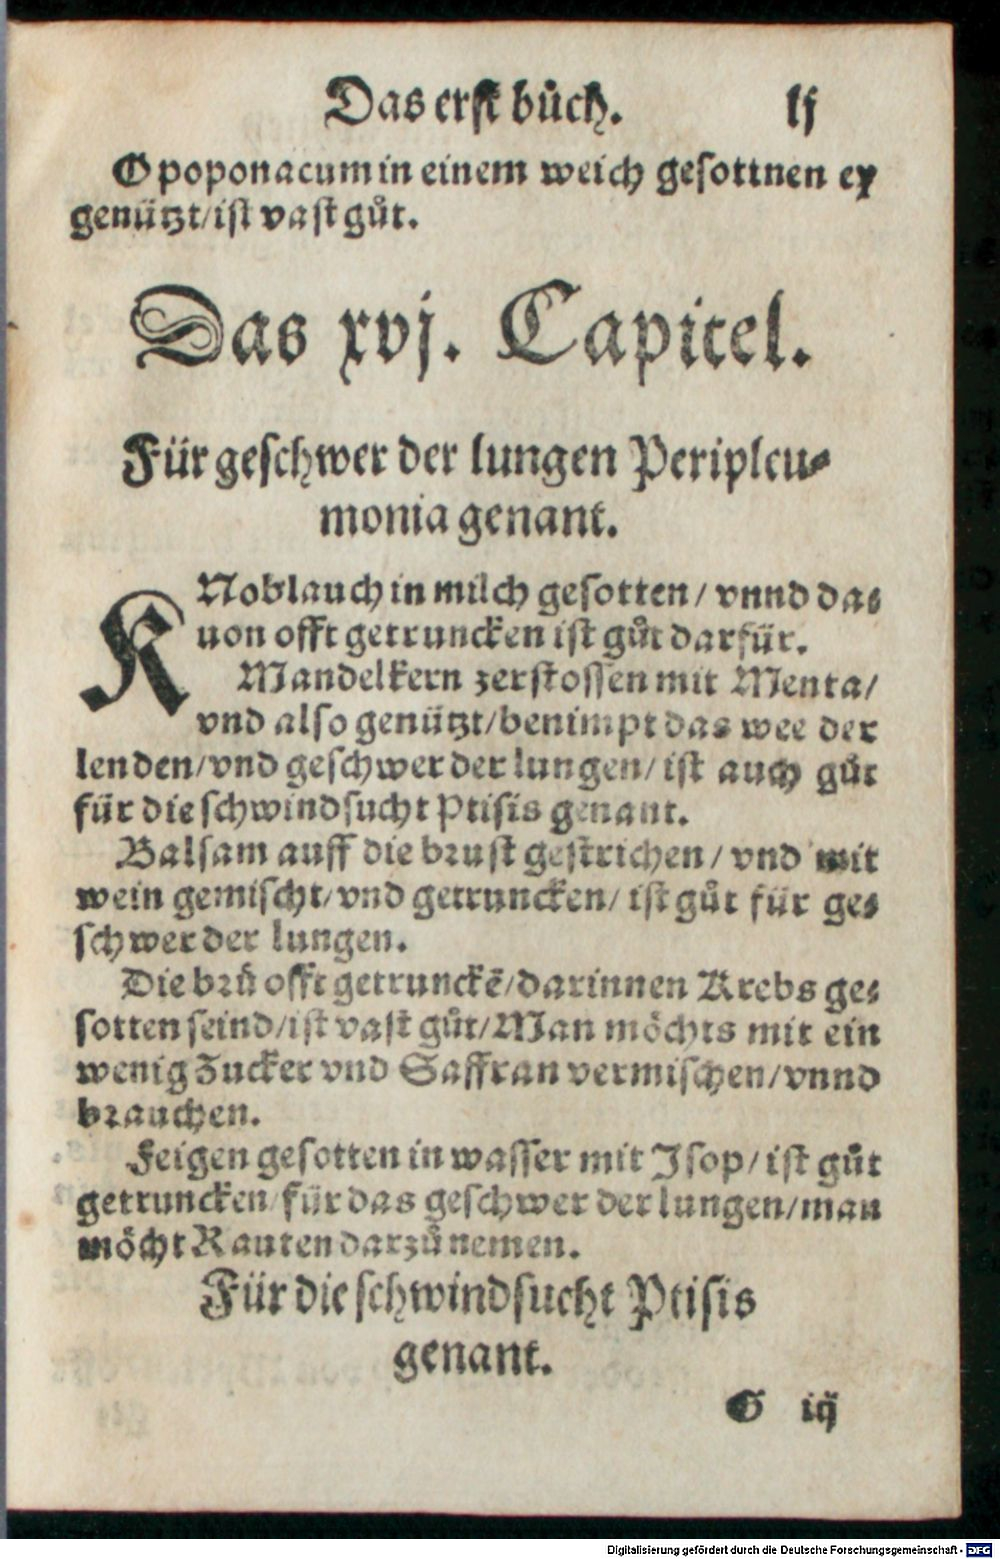 Das erst bůch. lj
Opoponacum in einem weich gesottnen ey
genützt/ist vast gůt.
Das xvj. Capitel.
Für geschwer der lungen Peripleu⸗
monia genant.
KNoblauch in milch gesotten/ vnnd das
uon offt getruncken ist gůt darfür.
Mandelkern zerstossen mit Menta/
vnd also genützt/benimpt das wee der
lenden/vnd geschwer der lungen/ist auch gůt
für die schwindsucht Ptisis genant.
Balsam auff die brust gestrichen/ vnd mit
wein gemischt/vnd getruncken/ ist gůt für ge⸗
schwer der lungen.
Die brů offt getrunckē/darinnen Krebs ge⸗
sotten seind/ist vast gůt/Man möchts mit ein
wenig Zucker vnd Saffran vermischen/vnnd
brauchen.
Feigen gesotten in wasser mit Isop/ist gůt
getruncken/für das geschwer der lungen/man
möcht Rauten darzů nemen.
Für die schwindsucht Ptisis
genant.
G iij
Digitalisierung gefördert durch die Deutsche Forschungsgemeinschaft - DFG